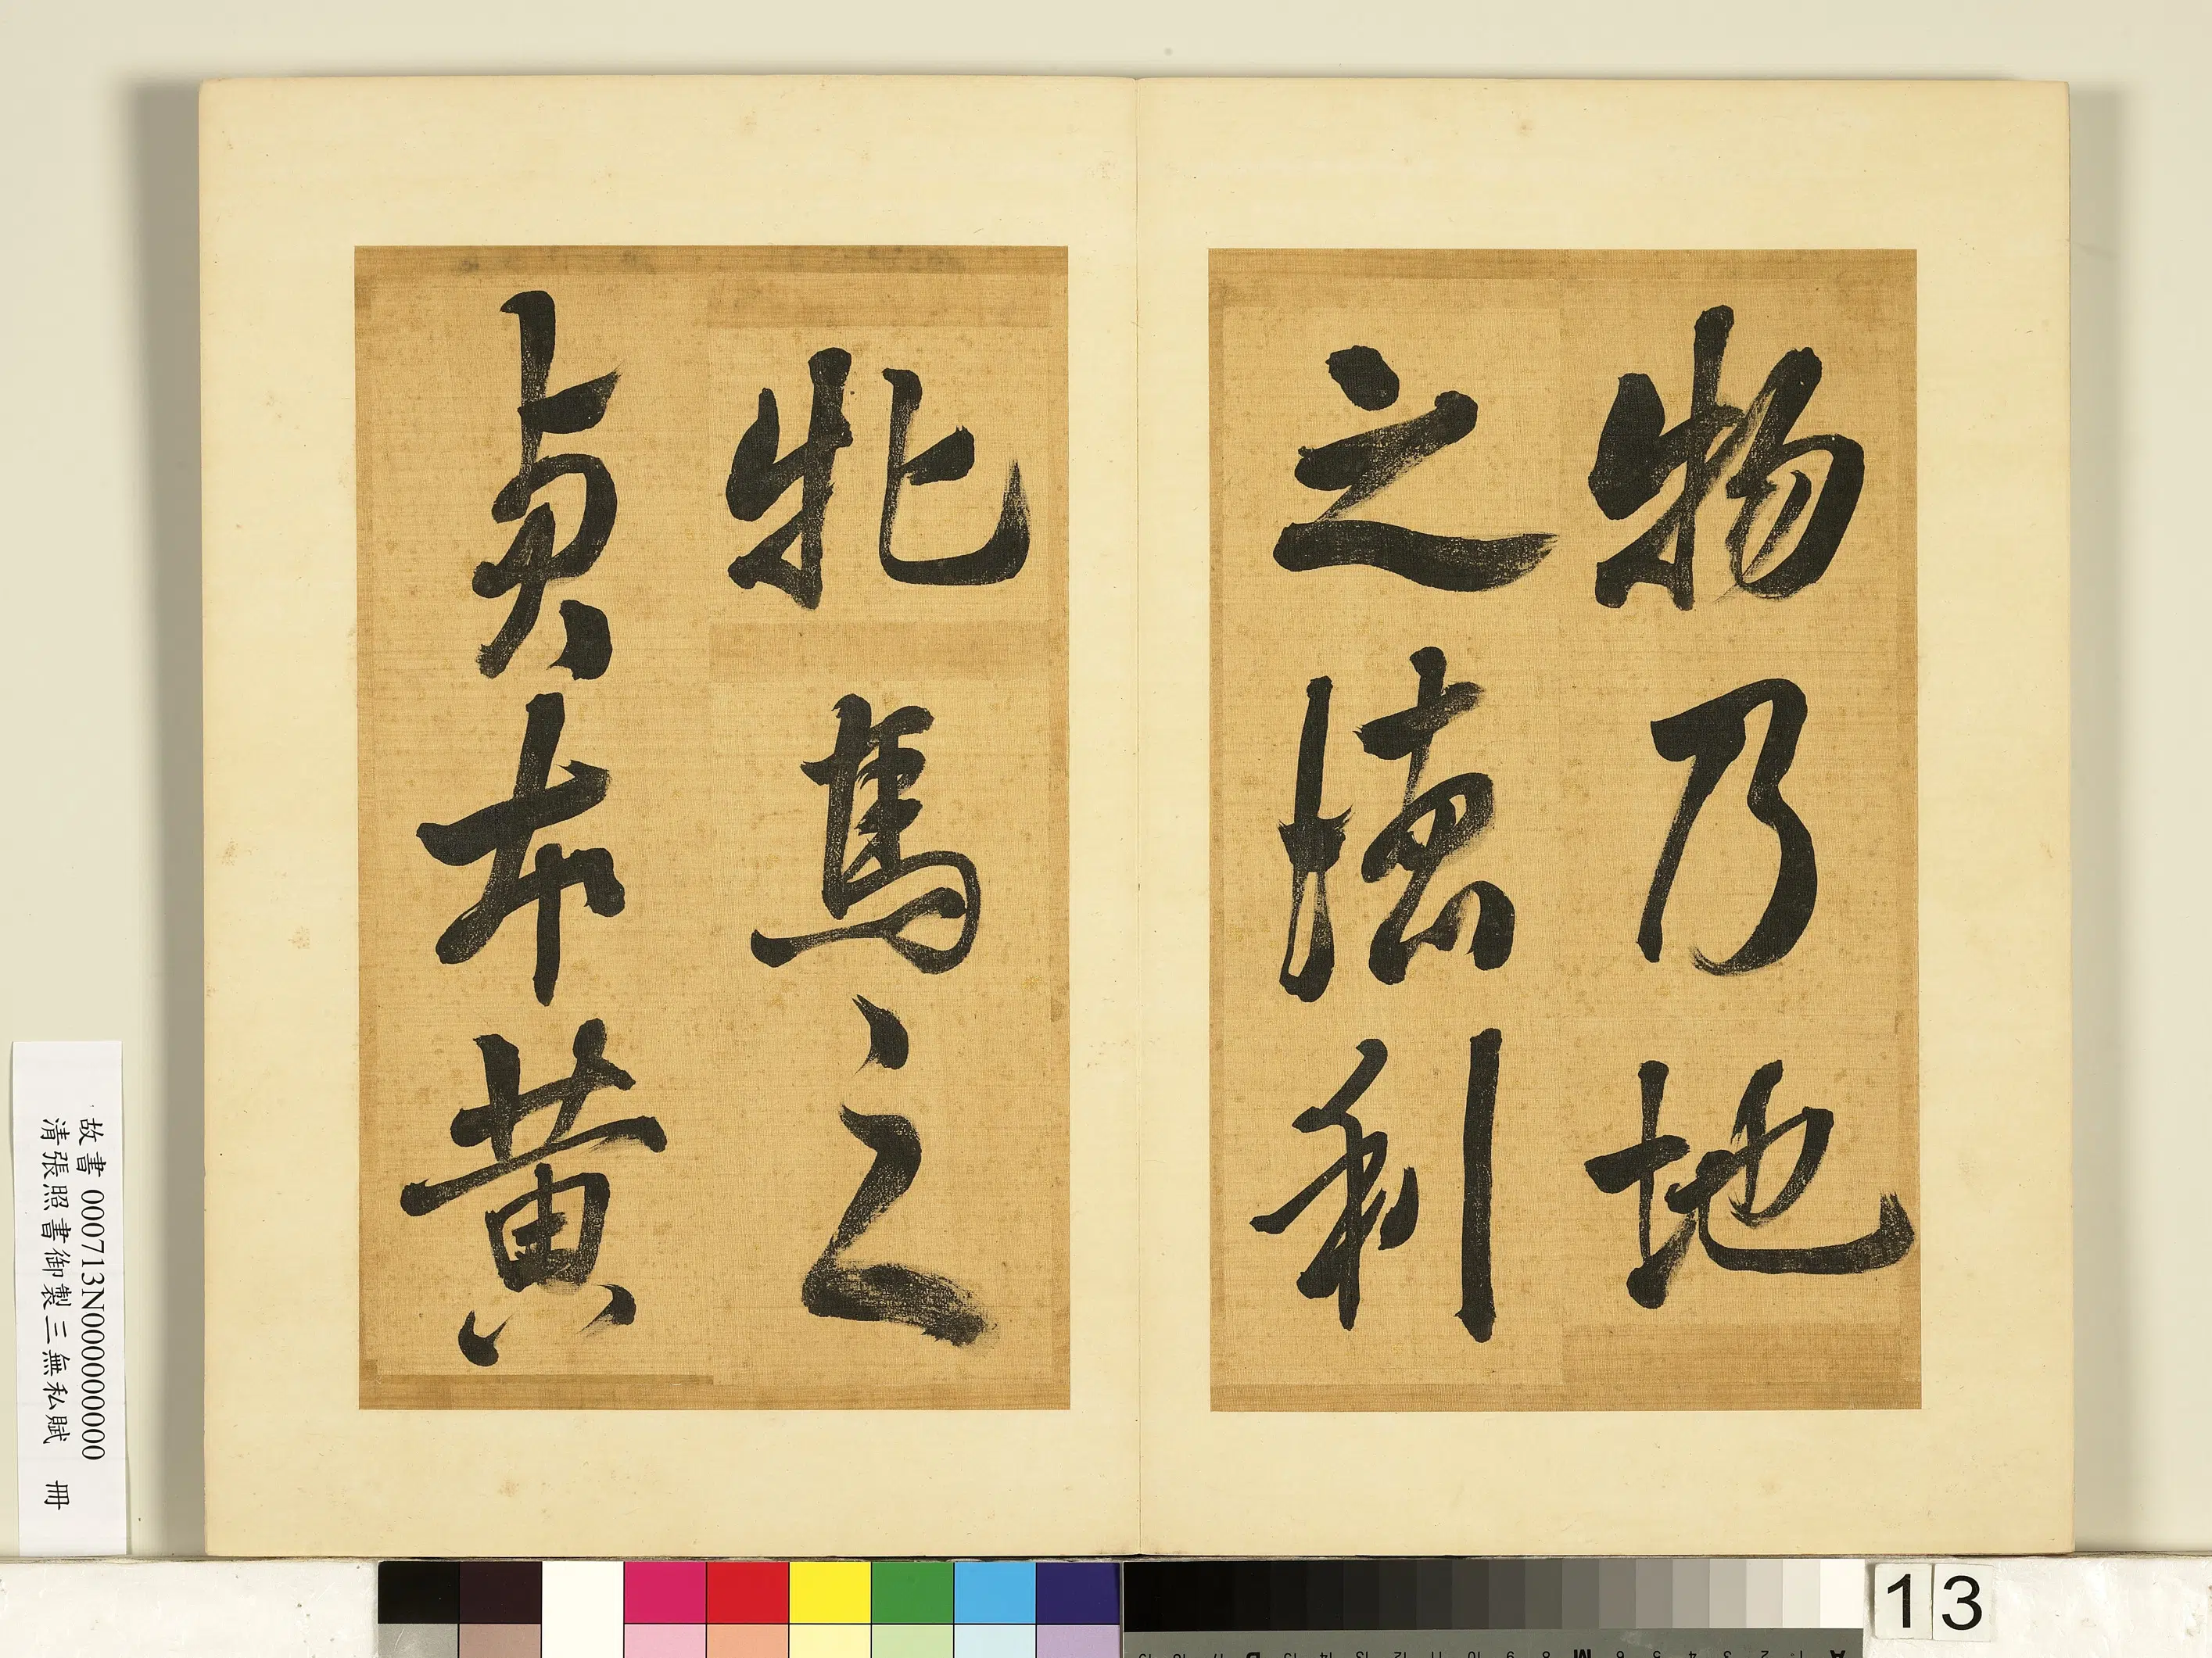 物乃地
之德利
牝馬之
貞布黄
故書 000713N000000000
清張照書御製三無私賦 冊
13